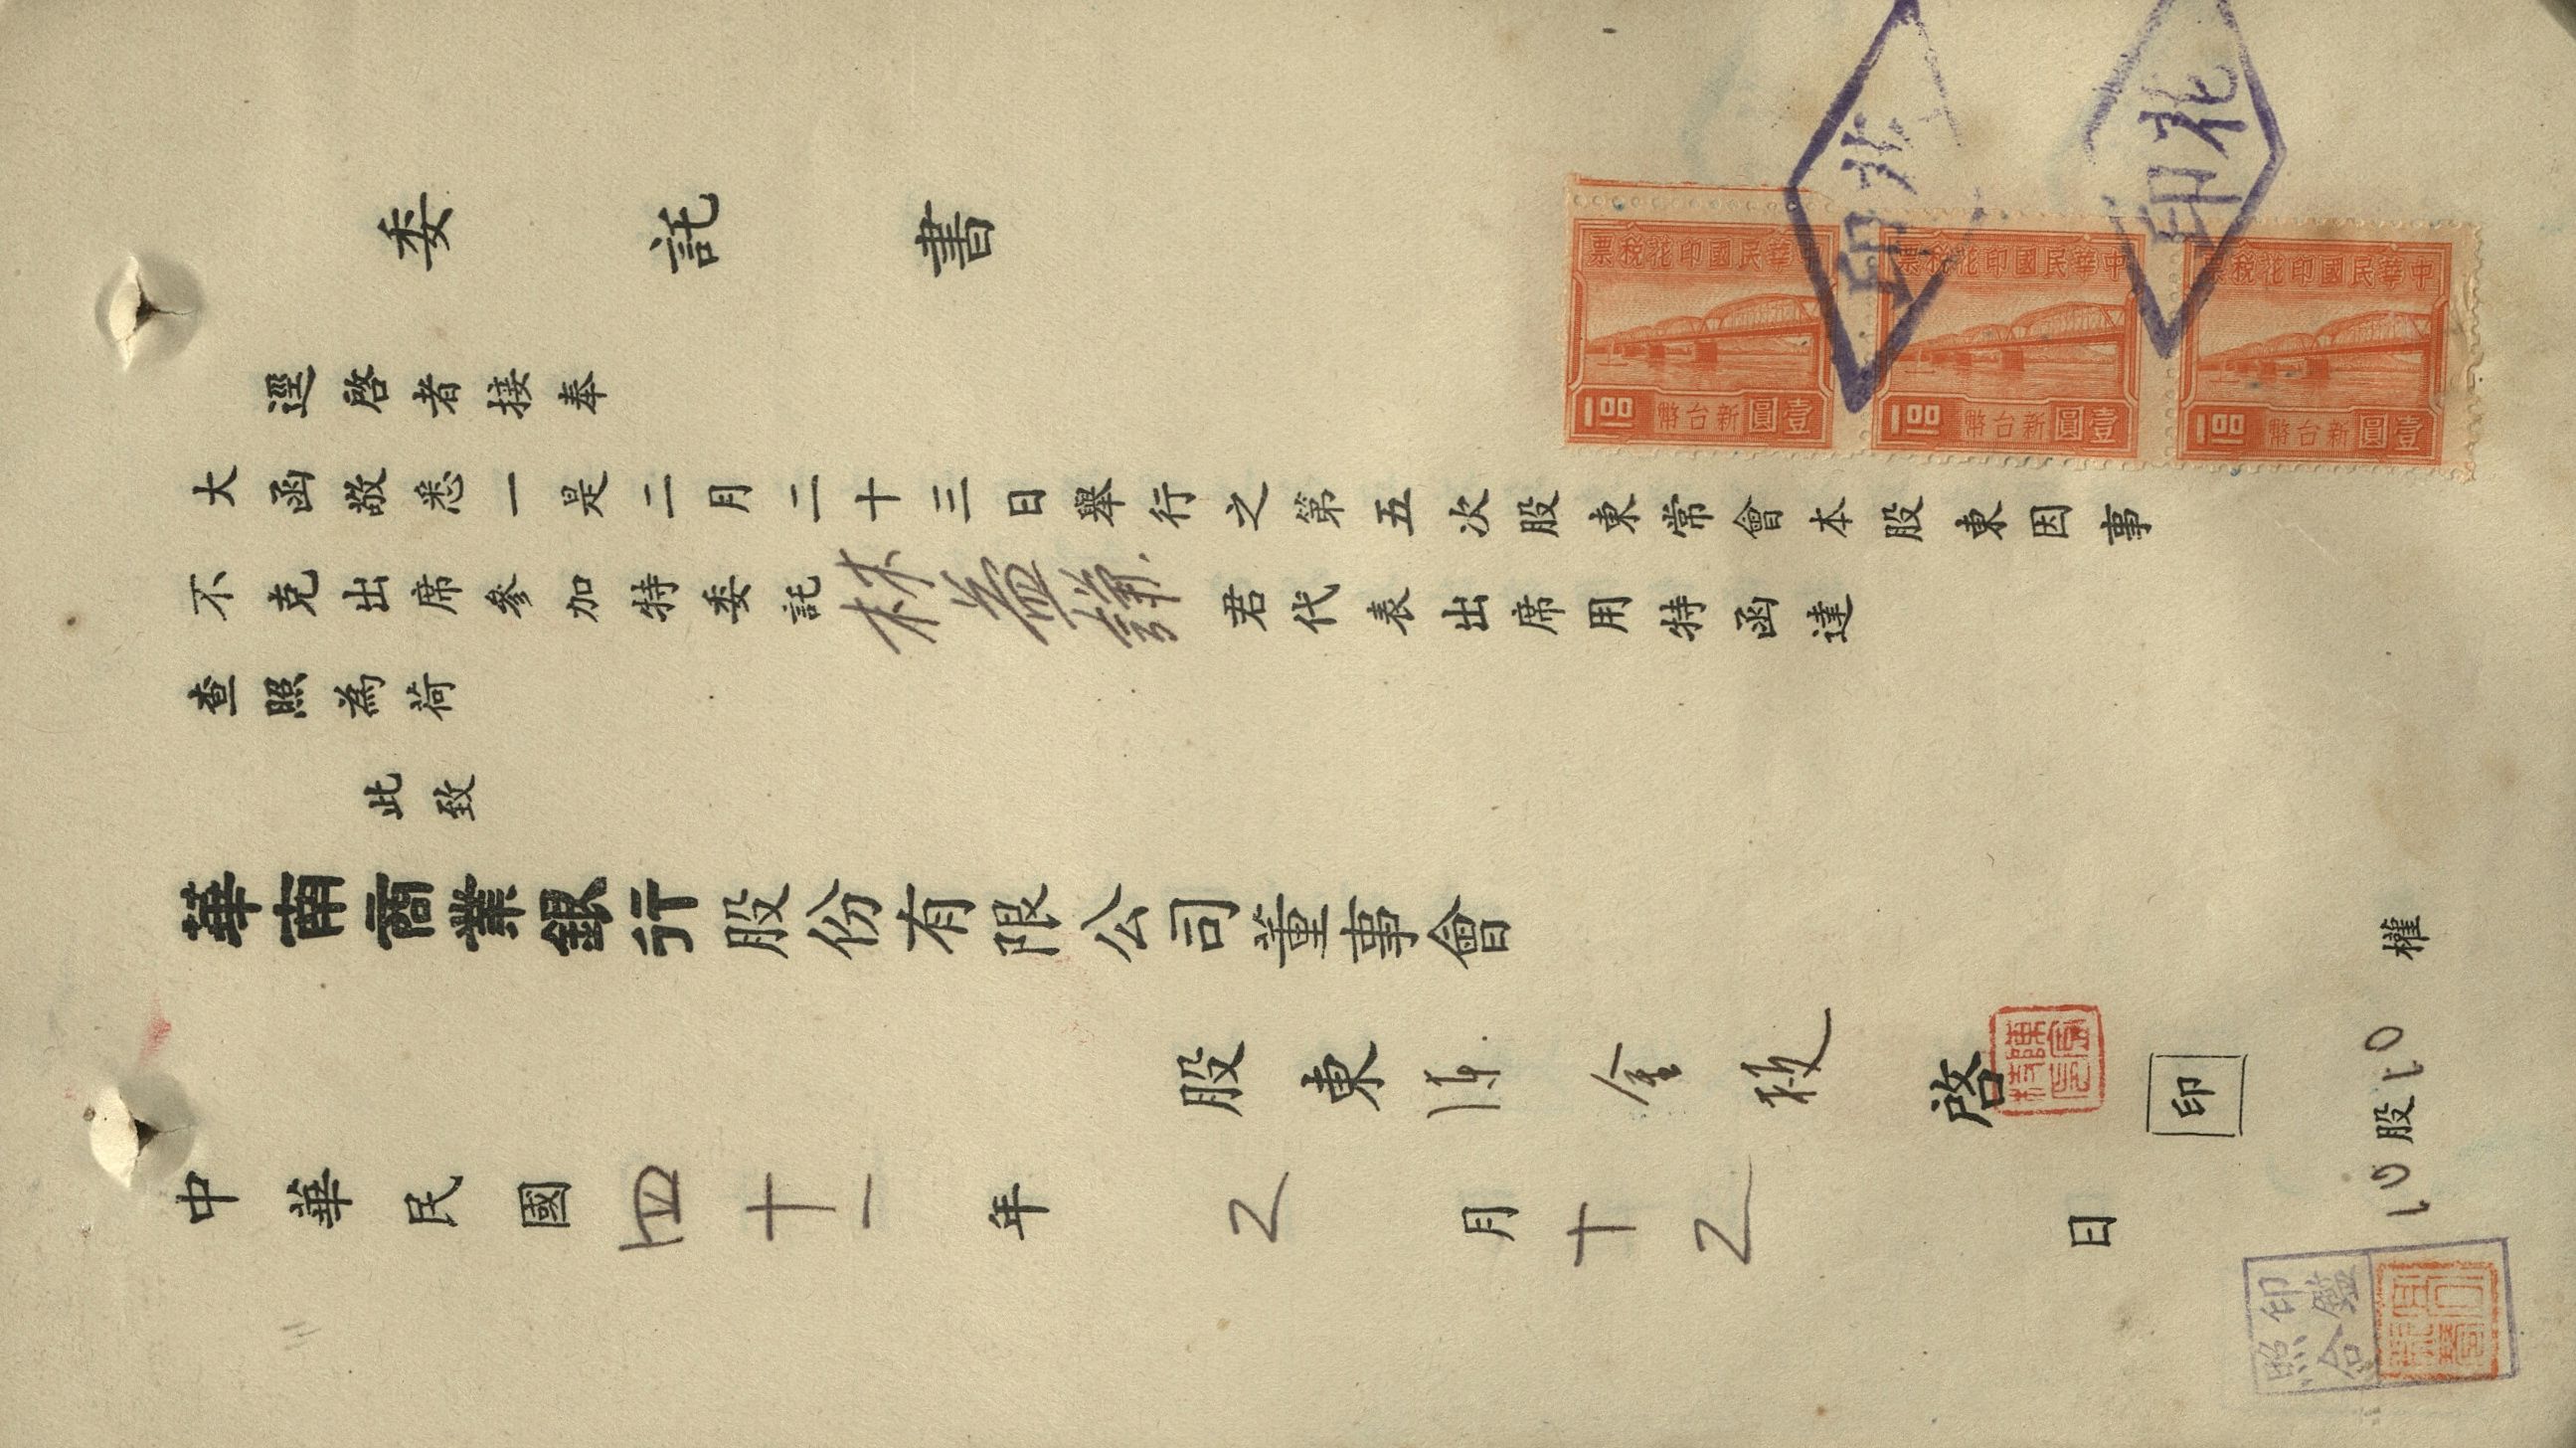 委託書
逕啓者接奉
大函敬悉一是二月二十三日舉行之第五次股東常會本股東因事
不克出席參加特委託林益謙君代表出席用特函達
查照為荷
此致
華南商業銀行股份有限公司董事會
股東 金 啓
印
中華民國四十一年2月十2日
10股10權
中華民國印花稅票
1.00 新台幣 壹圓
中華民國印花稅票
1.00 新台幣 壹圓
中華民國印花稅票
1.00 新台幣 壹圓
印花
印花
印鑑
照合